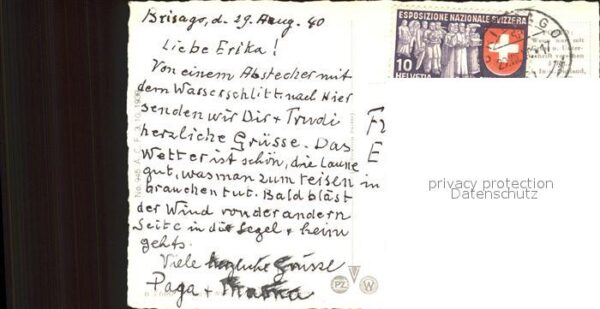 Brisago, d. 29. Aug. 40
Liebe Erika!
Von einem Abstecher mit
dem Wasserschlitt. nach hier
senden wir Dir + Trudi
herzliche Grüsse. Das
Wetter ist schön, die Laune
gut, was man zum reisen
brauchen tut. Bald bläst
der Wind von der andern
Seite in die Segel + heim
gehts.
Viele herzliche Grüsse
Papa + Mama
ESPOSIZIONE NAZIONALE SVIZZERA
10
HELVETIA
Fr
E
in
privacy protection
Datenschutz
PZ
W